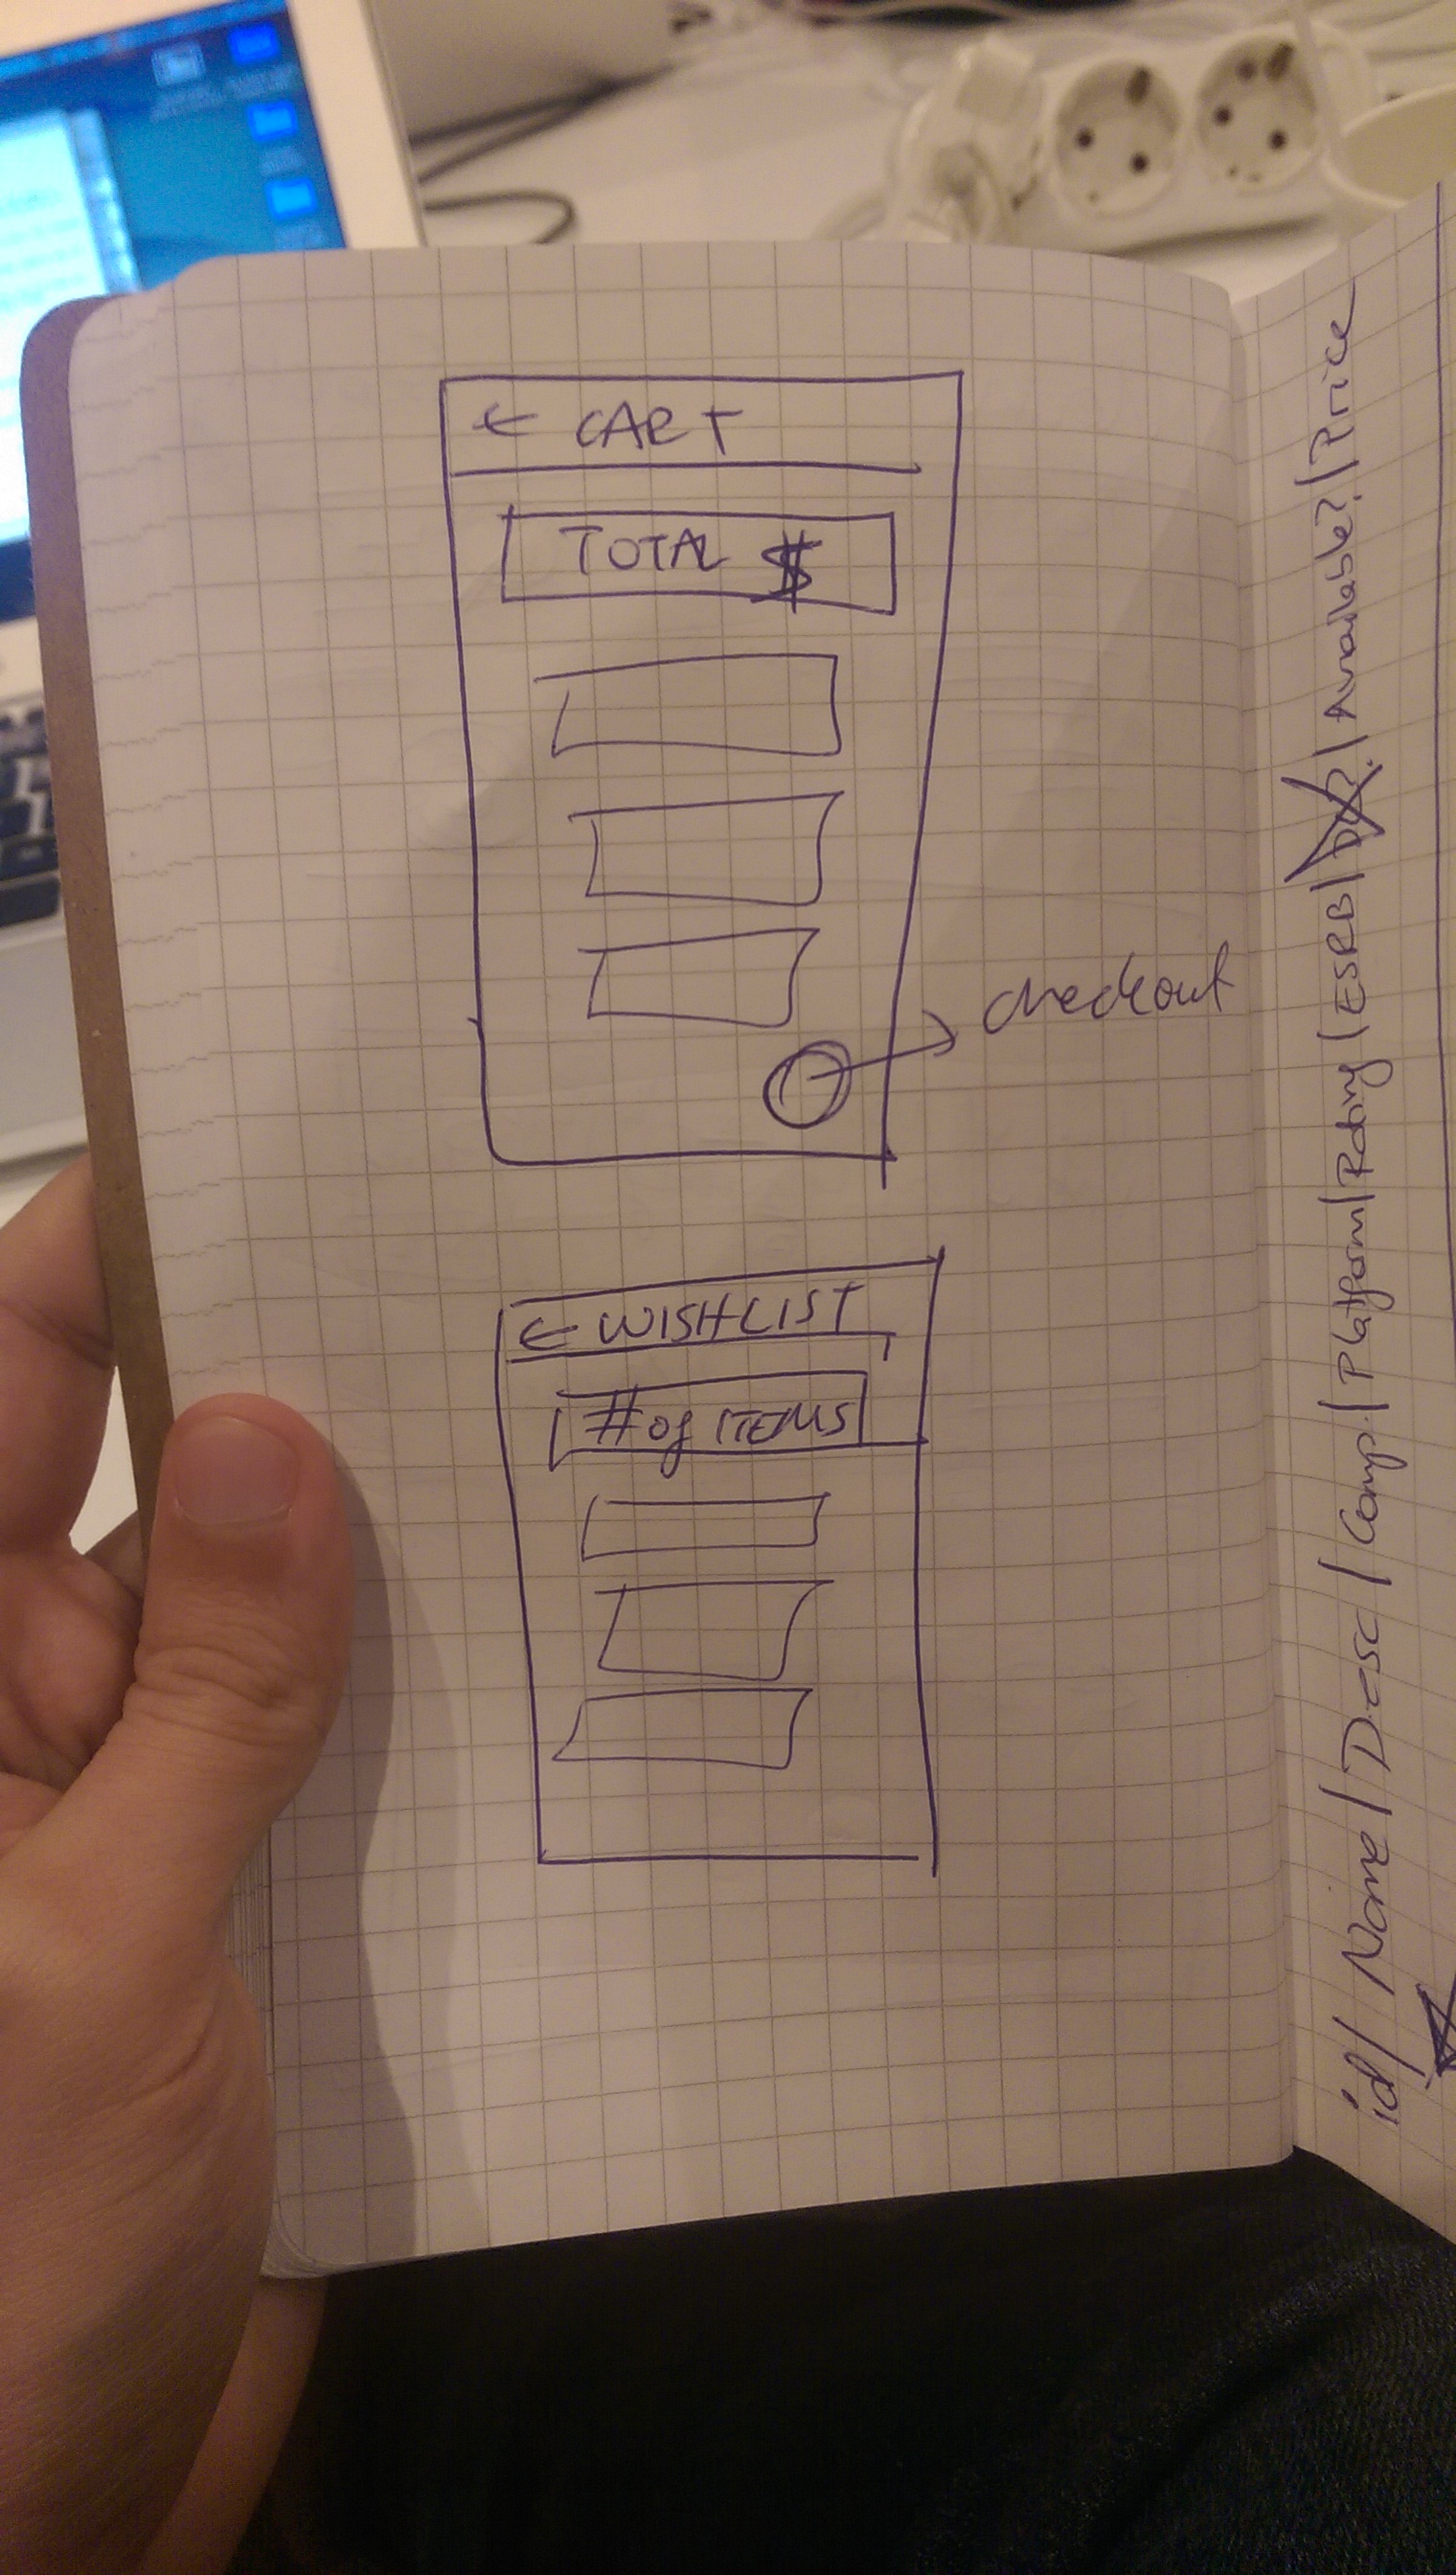 ← CART
TOTAL $
checkout
← WISHLIST
# of ITEMS
id / Name / Desc / Comp. / Platform / Rating (ESRB) / / Available? / Price